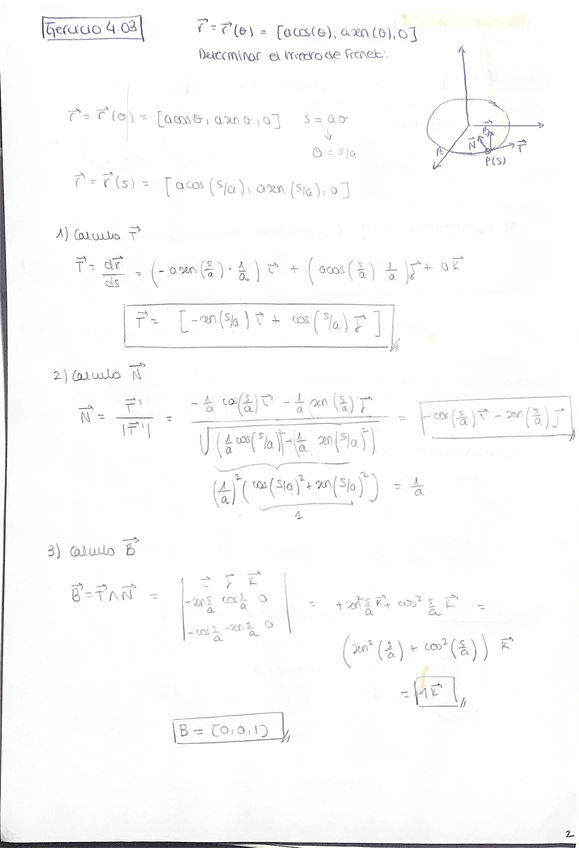 Ejercicio 4.03
r⃗ = r⃗(θ) = [a cos(θ), a sen(θ), 0]
Determinar el triedro de Frenet:
r⃗ = r⃗(θ) = [a cosθ, a senθ, 0]   s = aθ
↓
θ = s/a
r⃗ = r⃗(s) = [a cos(s/a), a sen(s/a), 0]
B⃗
N⃗ T⃗
P(s)
1) Calculo T⃗
T⃗ = dr⃗/ds = (-a sen(s/a) · 1/a) i⃗ + (a cos(s/a) 1/a) j⃗ + 0 k⃗
T⃗ = [-sen(s/a) i⃗ + cos(s/a) j⃗]
2) Calculo N⃗
N⃗ = T⃗'/|T⃗'| = (-1/a cos(s/a) i⃗ - 1/a sen(s/a) j⃗) / √((1/a cos(s/a))² + (1/a sen(s/a))²) = -cos(s/a) i⃗ - sen(s/a) j⃗
(1/a)² (cos(s/a)² + sen(s/a)²) = 1/a
1
3) Calculo B⃗
B⃗ = T⃗ ∧ N⃗ = | i⃗ j⃗ k⃗ | = + sen² s/a k⃗ + cos² s/a k⃗ =
| -sen s/a cos s/a 0 |
| -cos s/a -sen s/a 0 |
(sen²(s/a) + cos²(s/a)) k⃗
= 1k⃗
B = (0,0,1)
2